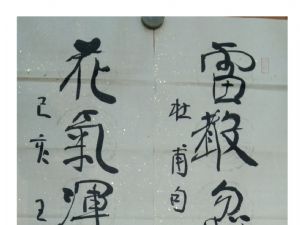 雷聲忽
杜甫句
花氣渾
己亥王